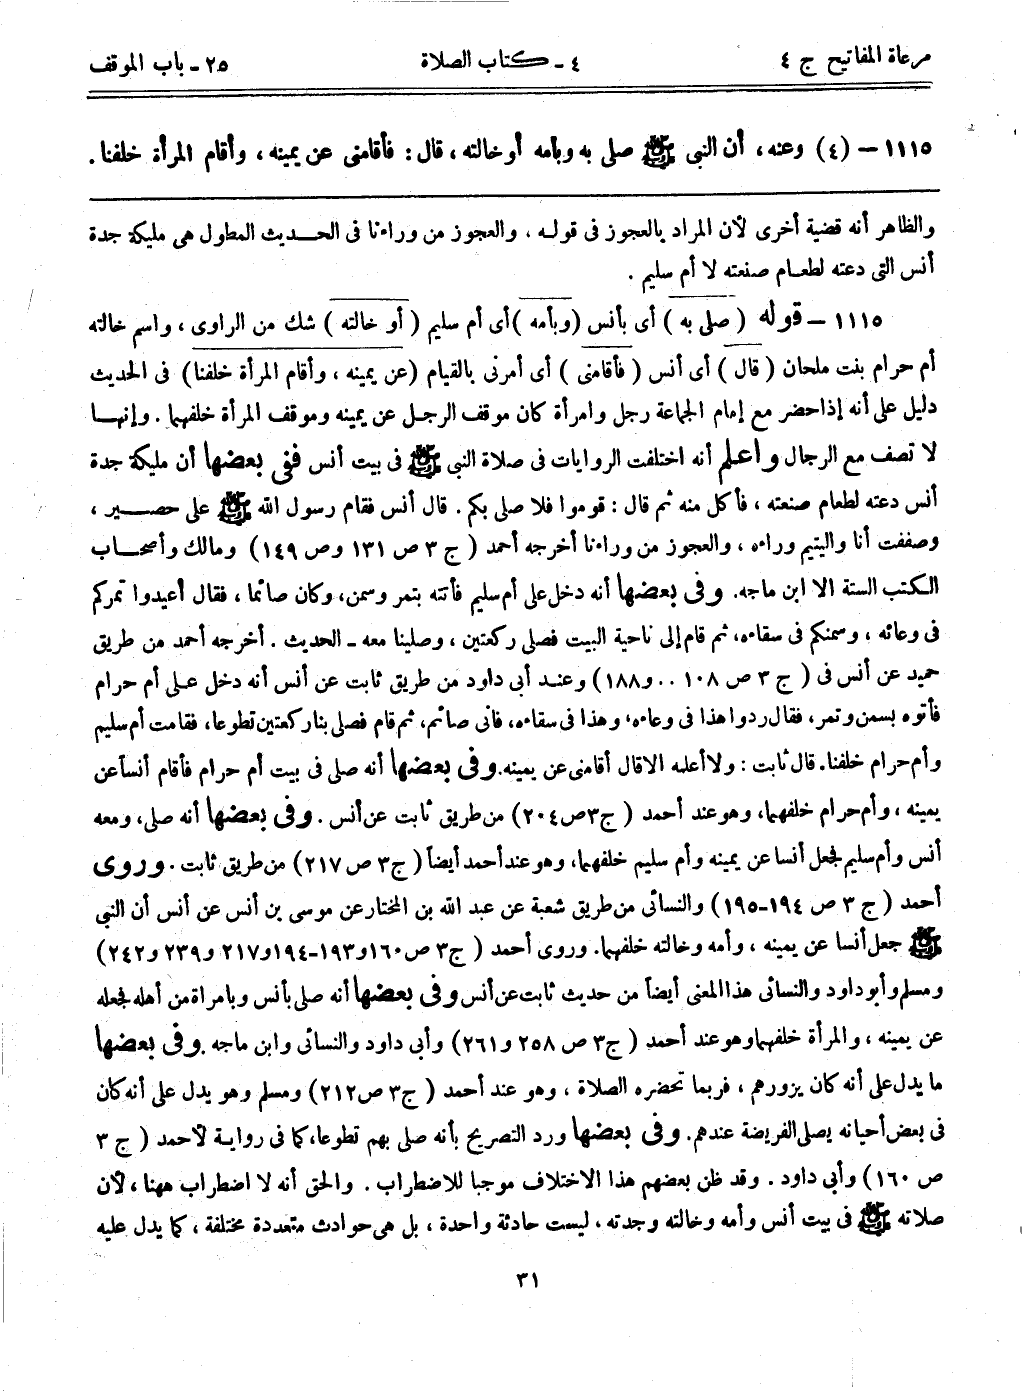 مرعاة المفاتيح ج ٤ ٤ - كتاب الصلاة ٢٥ - باب الموقف
١١١٥ - (٤) وعنه، أن النبي ﷺ صلى به وبأمه أو خالته، قال: فأقامنى عن يمينه، وأقام المرأة خلفنا.
والظاهر أنه قضية أخرى لأن المراد بالعجوز فى قوله، والعجوز من ورائنا فى الحديث المطول هى مليكة جدة
أنس التى دعته لطعام صنعته لا أم سليم.
١١١٥ - قوله (صلى به) أى بأنس (وبأمه) أى أم سليم (أو خالته) شك من الراوى، واسم خالته
أم حرام بنت ملحان (قال) أى أنس (فأقامنى) أى أمرنى بالقيام (عن يمينه، وأقام المرأة خلفنا) فى الحديث
دليل على أنه إذا حضر مع إمام الجماعة رجل وامرأة كان موقف الرجل عن يمينه وموقف المرأة خلفهما. وإنها
لا تصف مع الرجال واعلم أنه اختلفت الروايات فى صلاة النبى ﷺ فى بيت أنس ففى بعضها أن مليكة جدة
أنس دعته لطعام صنعته، فأكل منه ثم قال: قوموا فلا صلى بكم. قال أنس فقام رسول الله ﷺ على حصير،
وصففت أنا واليتيم وراءه، والعجوز من ورائنا أخرجه أحمد (ج ٣ ص ١٣١ وص ١٤٩) ومالك وأصحاب
الكتب الستة الا ابن ماجه. وفى بعضها أنه دخل على أم سليم فأتته بتمر وسمن، وكان صائما، فقال أعيدوا تمركم
فى وعائه، وسمنكم فى سقاءه، ثم قام إلى ناحية البيت فصلى ركعتين، وصلينا معه - الحديث. أخرجه أحمد من طريق
حميد عن أنس فى (ج ٣ ص ١٠٨ .. و١٨٨) وعند أبى داود من طريق ثابت عن أنس أنه دخل على أم حرام
فأتوه بسمن وتمر، فقال ردوا هذا فى وعاءه، وهذا فى سقاءه، فانى صائم، ثم قام فصلى بنا ركعتين تطوعا، فقامت أم سليم
وأم حرام خلفنا. قال ثابت: ولا أعلمه الا قال أقامنى عن يمينه. وفى بعضها أنه صلى فى بيت أم حرام فأقام أنساً عن
يمينه، وأم حرام خلفهما، وهو عند أحمد (ج٣ ص٢٠٤) من طريق ثابت عن أنس. وفى بعضها أنه صلى، ومعه
أنس وأم سليم فجعل أنسا عن يمينه وأم سليم خلفهما، وهو عند أحمد أيضاً (ج٣ ص ٢١٧) من طريق ثابت. وروى
أحمد (ج ٣ ص ١٩٤-١٩٥) والنسائى من طريق شعبة عن عبد الله بن المختار عن موسى بن أنس عن أنس أن النبى
ﷺ جعل أنسا عن يمينه، وأمه وخالته خلفهما. وروى أحمد (ج٣ ص١٦٠ و١٩٣-١٩٤ و٢١٧ و٢٣٩ و٢٤٢)
ومسلم وأبو داود والنسائى هذا المعنى أيضاً من حديث ثابت عن أنس وفى بعضها أنه صلى بأنس وبامرأة من أهله فجعله
عن يمينه، والمرأة خلفهما وهو عند أحمد (ج٣ ص ٢٥٨ و٢٦١) وأبى داود والنسائى وابن ماجه. وفى بعضها
ما يدل على أنه كان يزورهم، فربما تحضره الصلاة، وهو عند أحمد (ج٣ ص٢١٢) ومسلم وهو يدل على أنه كان
فى بعض أحيانه يصلى الفريضة عندهم. وفى بعضها ورد التصريح بأنه صلى بهم تطوعا، كما فى رواية لأحمد (ج ٣
ص ١٦٠) وأبى داود. وقد ظن بعضهم هذا الاختلاف موجبا للاضطراب. والحق أنه لا اضطراب ههنا، لأن
صلاته ﷺ فى بيت أنس وأمه وخالته وجدته، ليست حادثة واحدة، بل هى حوادث متعددة مختلفة، كما يدل عليه
٣١